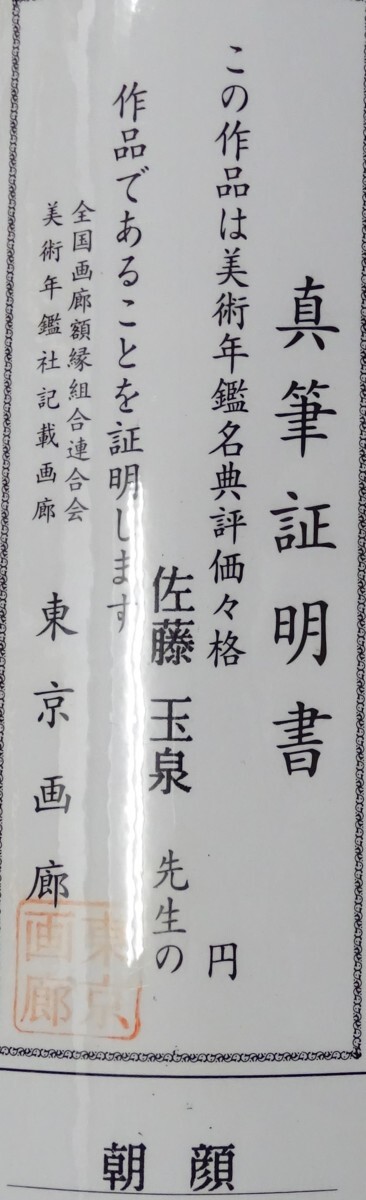 真筆証明書
この作品は美術年鑑名典評価々格 円
佐藤 玉泉 先生の
作品であることを証明します
全国画廊額縁組合連合会
美術年鑑社記載画廊
東京画廊
東京画廊
朝顔